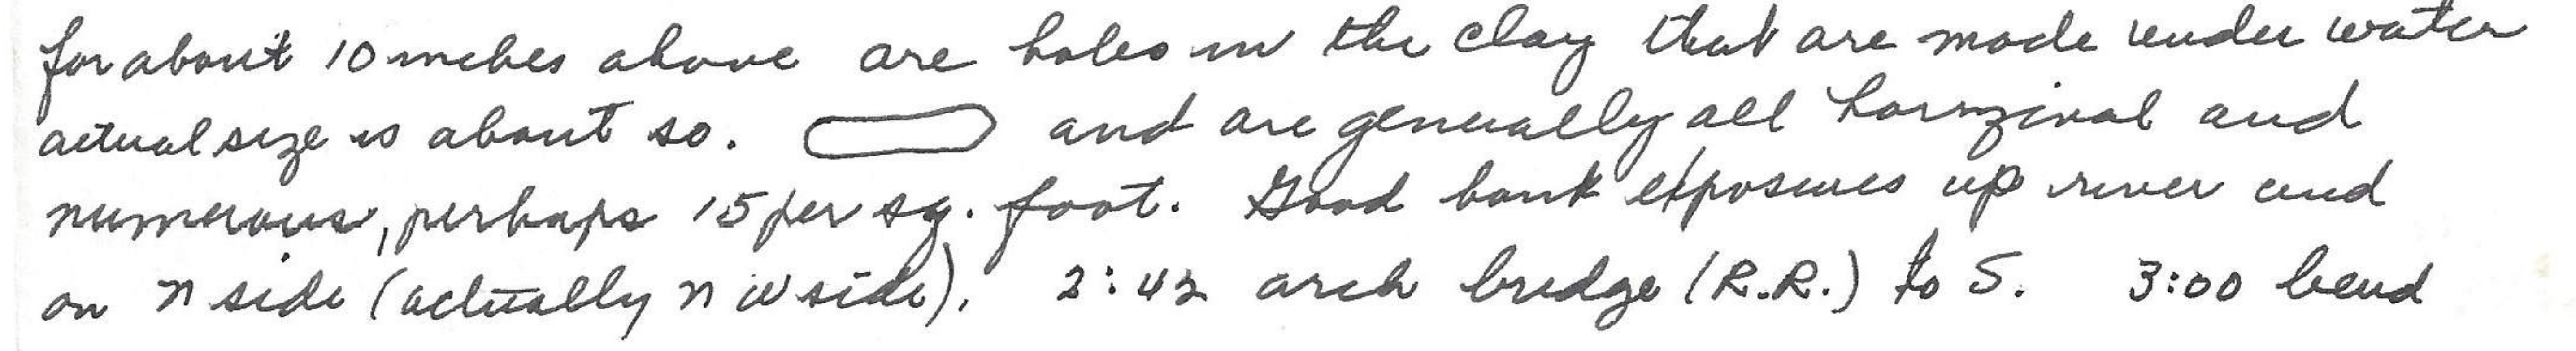 for about 10 inches above are holes in the clay that are made under water
actual size is about so. and are generally all horizinal and
numerous, perhaps 15 per sq. foot. Good bank exposures up river and
on n side (actually n w side). 2:42 arch bridge (R.R.) to S. 3:00 bend